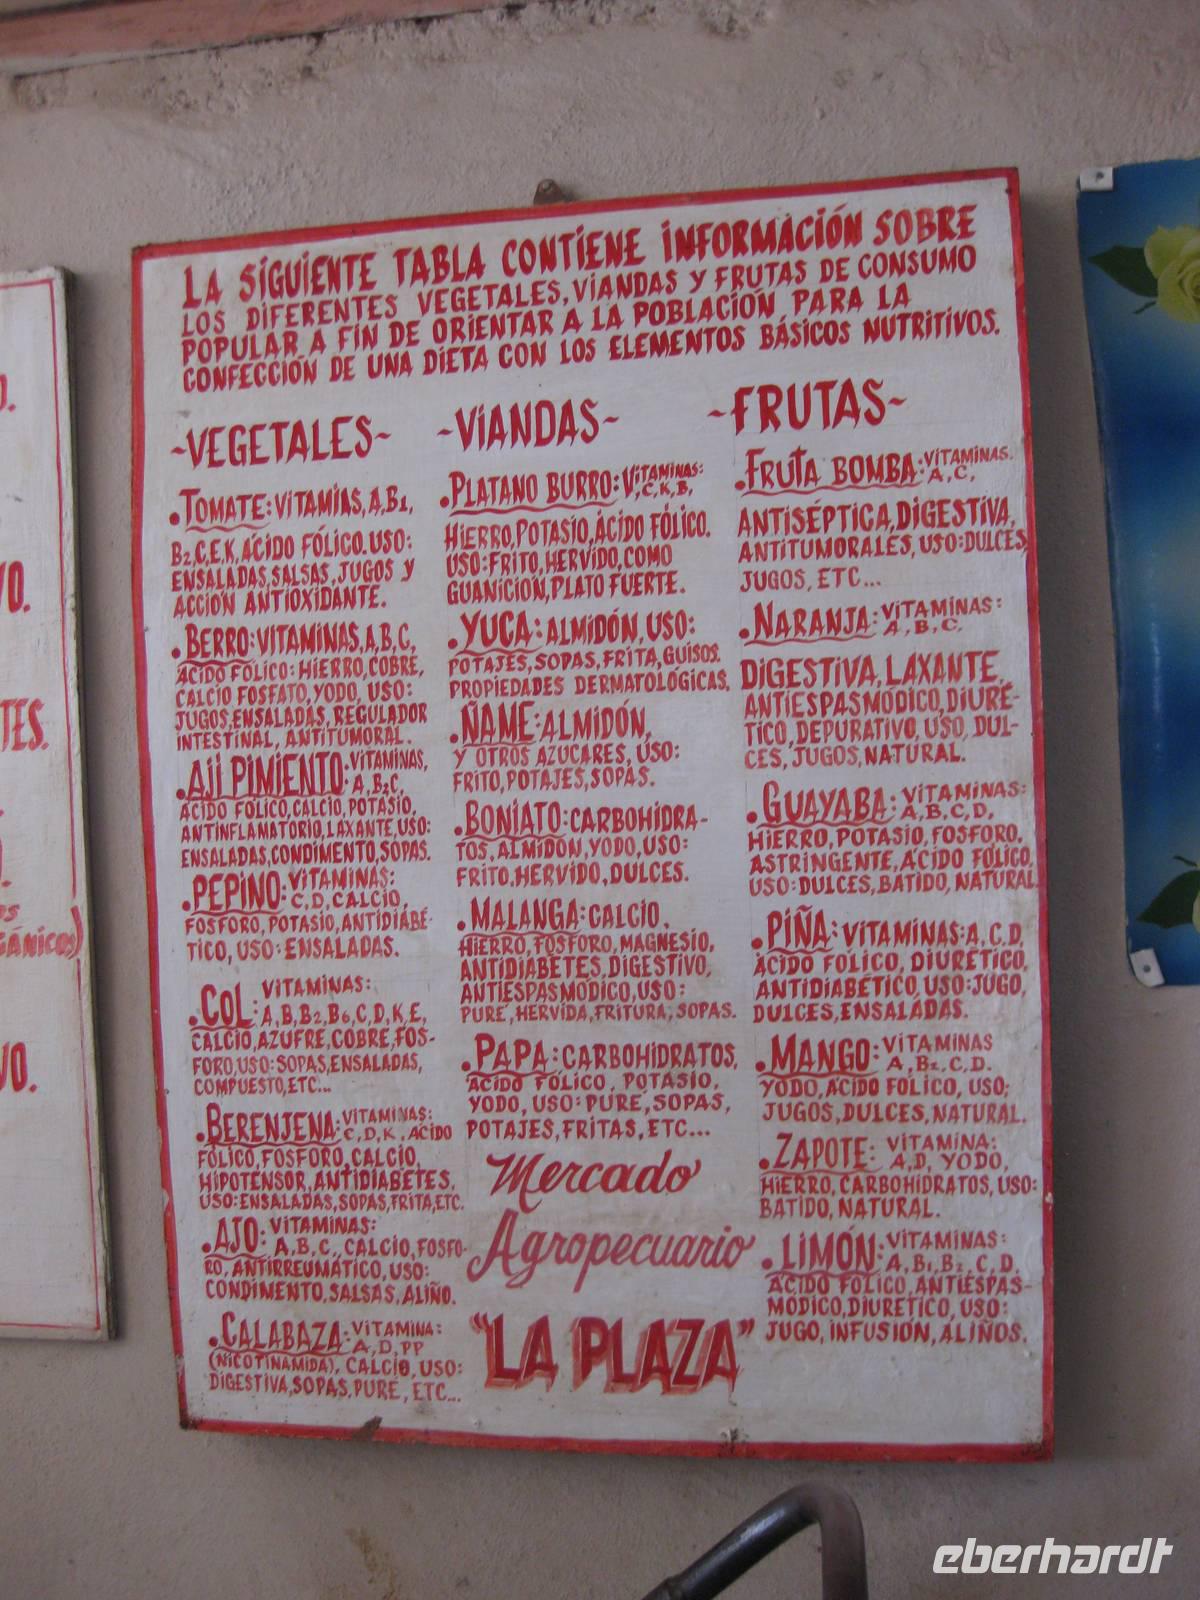 LA SIGUIENTE TABLA CONTIENE INFORMACIÓN SOBRE
LOS DIFERENTES VEGETALES, VIANDAS Y FRUTAS DE CONSUMO
POPULAR A FIN DE ORIENTAR A LA POBLACIÓN PARA LA
CONFECCIÓN DE UNA DIETA CON LOS ELEMENTOS BÁSICOS NUTRITIVOS.
~VEGETALES~
.TOMATE: VITAMIAS, A, B1,
B2, C, E, K, ACIDO FÓLICO. USO:
ENSALADAS, SALSAS, JUGOS Y
ACCIÓN ANTIOXIDANTE.
.BERRO: VITAMINAS, A, B, C,
ACIDO FÓLICO: HIERRO, COBRE,
CALCIO FOSFATO, YODO, USO:
JUGOS, ENSALADAS, REGULADOR
INTESTINAL, ANTITUMORAL.
.AJI PIMIENTO: VITAMINAS,
A, B2C,
ACIDO FOLICO, CALCIO, POTASIO,
ANTINFLAMATORIO, LAXANTE, USO:
ENSALADAS, CONDIMENTO, SOPAS.
.PEPINO: VITAMINAS:
C, D, CALCIO,
FOSFORO, POTASIO, ANTIDIABÉ-
TICO, USO: ENSALADAS.
.COL: VITAMINAS:
A, B, B2, B6, C, D, K, E,
CALCIO, AZUFRE, COBRE, FOS-
FORO, USO: SOPAS, ENSALADAS,
COMPUESTO, ETC...
.BERENJENA: VITAMINAS:
C, D, K, ACIDO
FÓLICO, FOSFORO, CALCIO,
HIPOTENSOR, ANTIDIABETES,
USO: ENSALADAS, SOPAS, FRITA, ETC.
.AJO: VITAMINAS:
A, B, C, CALCIO, FOSFO-
RO, ANTIRREUMÁTICO, USO:
CONDIMENTO, SALSAS, ALIÑO.
.CALABAZA: VITAMINA:
A, D, PP
(NICOTINAMIDA), CALCIO, USO:
DIGESTIVA, SOPAS, PURE, ETC...
~VIANDAS~
.PLATANO BURRO: VITAMINAS:
C, K, B,
HIERRO, POTASIO, ÁCIDO FÓLICO.
USO: FRITO, HERVIDO, COMO
GUANICIÓN, PLATO FUERTE.
.YUCA: ALMIDÓN, USO:
POTAJES, SOPAS, FRITA, GUISOS.
PROPIEDADES DERMATOLÓGICAS.
.ÑAME: ALMIDÓN,
Y OTROS AZUCARES, USO:
FRITO, POTAJES, SOPAS.
.BONIATO: CARBOHIDRA-
TOS, ALMIDÓN, YODO, USO:
FRITO, HERVIDO, DULCES.
.MALANGA: CALCIO,
HIERRO, FOSFORO, MAGNESIO,
ANTIDIABETES, DIGESTIVO,
ANTIESPASMODICO, USO:
PURE, HERVIDA, FRITURA, SOPAS.
.PAPA: CARBOHIDRATOS,
ACIDO FÓLICO, POTASIO,
YODO, USO: PURE, SOPAS,
POTAJES, FRITAS, ETC...
Mercado
Agropecuario
"LA PLAZA"
~FRUTAS~
.FRUTA BOMBA: VITAMINAS.
A, C,
ANTISÉPTICA, DIGESTIVA,
ANTITUMORALES, USO: DULCES,
JUGOS, ETC...
.NARANJA: VITAMINAS:
A, B, C,
DIGESTIVA, LAXANTE,
ANTIESPASMÓDICO, DIURE-
TICO, DEPURATIVO, USO, DUL-
CES, JUGOS, NATURAL.
.GUAYABA: VITAMINAS:
A, B, C, D,
HIERRO, POTASIO, FOSFORO,
ASTRINGENTE, ACIDO FOLICO,
USO: DULCES, BATIDO, NATURAL
.PIÑA: VITAMINAS: A, C, D,
ACIDO FOLICO, DIURETICO,
ANTIDIABÉTICO, USO: JUGO,
DULCES, ENSALADAS.
.MANGO: VITAMINAS
A, B2, C, D.
YODO, ACIDO FOLICO, USO;
JUGOS, DULCES, NATURAL.
.ZAPOTE: VITAMINA:
A, D, YODO,
HIERRO, CARBOHIDRATOS, USO:
BATIDO, NATURAL.
.LIMÓN: VITAMINAS:
A, B1, B2, C, D.
ACIDO FOLICO, ANTIESPAS-
MÓDICO, DIURETICO, USO:
JUGO, INFUSIÓN, ALIÑOS.
eberhardt